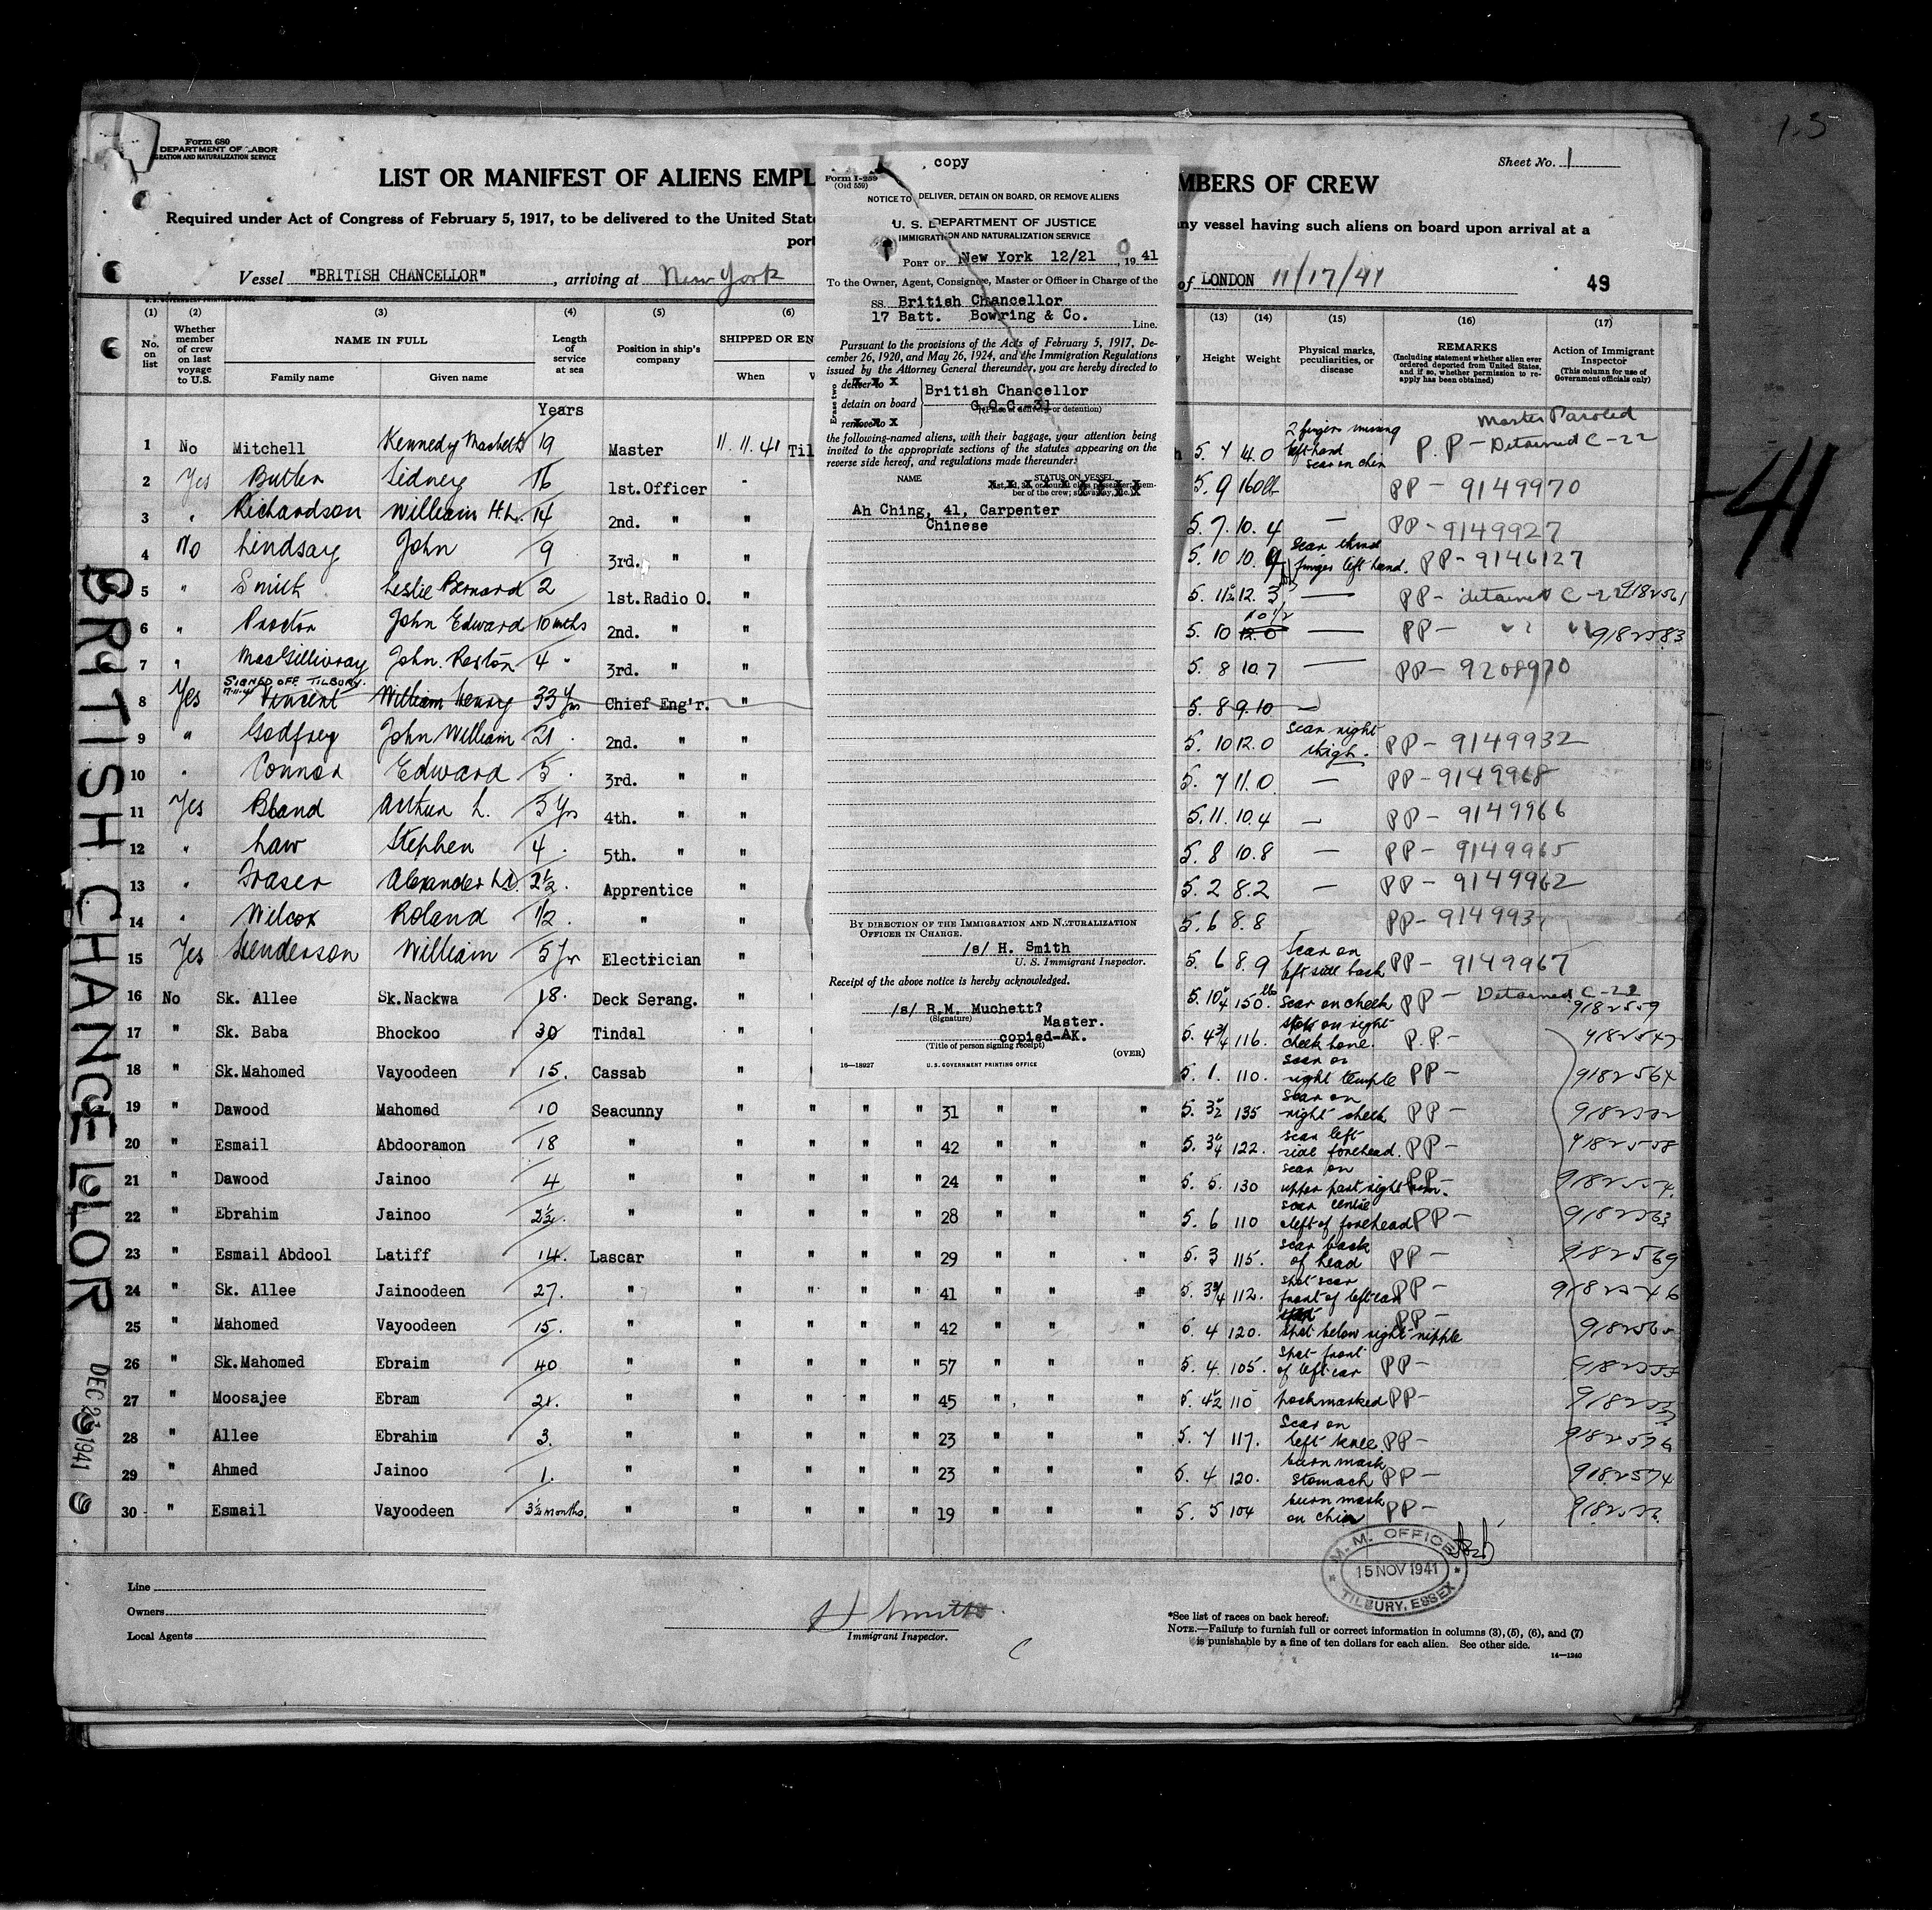 1-5
Form 680
DEPARTMENT OF LABOR
GRATION AND NATURALIZATION SERVICE
Sheet No. 1
LIST OR MANIFEST OF ALIENS EMPL
MBERS OF CREW
Required under Act of Congress of February 5, 1917, to be delivered to the United State
any vessel having such aliens on board upon arrival at a
port
Vessel "BRITISH CHANCELLOR", arriving at New York
of LONDON 11/17/41
49
copy
Form I-259
(Old 559)
NOTICE TO DELIVER, DETAIN ON BOARD, OR REMOVE ALIENS
U. S. DEPARTMENT OF JUSTICE
IMMIGRATION AND NATURALIZATION SERVICE
PORT OF New York 12/21, 1941
To the Owner, Agent, Consignee, Master or Officer in Charge of the
SS. British Chancellor
17 Batt. Bowring & Co. Line.
Pursuant to the provisions of the Acts of February 5, 1917, De-
cember 26, 1920, and May 26, 1924, and the Immigration Regulations
issued by the Attorney General thereunder, you are hereby directed to
Erase two
deliver to
detain on board
remove to
British Chancellor
G.O.C.-31
(Place of delivery or detention)
the following-named aliens, with their baggage, your attention being
invited to the appropriate sections of the statutes appearing on the
reverse side hereof, and regulations made thereunder:
NAME STATUS ON VESSEL
ber of the crew; stowaway, etc.)
Ah Ching, 41, Carpenter
Chinese
BY DIRECTION OF THE IMMIGRATION AND NATURALIZATION
OFFICER IN CHARGE.
/s/ H. Smith
U. S. Immigrant Inspector.
Receipt of the above notice is hereby acknowledged.
/s/ R.M. Muchett?
(Signature)
Master.
copied-AK.
(Title of person signing receipt)
(OVER)
16—18927 U. S. GOVERNMENT PRINTING OFFICE
(1) (2) (3) (4) (5) (6) (13) (14) (15) (16) (17)
No. on list
Whether member of crew on last voyage to U.S.
NAME IN FULL
Family name Given name
Length of service at sea
Position in ship's company
SHIPPED OR EN
When
Height Weight
Physical marks, peculiarities, or disease
REMARKS
(Including statement whether alien ever ordered deported from United States, and if so, whether permission to re-apply has been obtained)
Action of Immigrant Inspector
(This column for use of Government officials only)
Years
Master Paroled
1 No Mitchell Kennedy 19 Master 11.11.41 Til 5. 7 14.0 2 fingers missing left hand scar on chin P.P - Detained C-22
2 Yes Butler Sidney 16 1st.Officer " 5. 9 160lb PP - 9149970
3 " Richardson William H.L. 14 2nd. " " 5. 7. 10. 4 — PP - 9149927
4 No Lindsay John 9 3rd. " " 5. 10 10. 9 scar third finger left hand. PP - 9146127
5 " Smith Leslie Bernard 2 1st.Radio O. " 5. 11½ 12. 3 — PP - detained C-22 9182561
6 " Proctor John Edward 10 mths 2nd. " " 5. 10 12.0 10 1/2 — PP - " " 9182583
7 " MacGillivray John Reston 4 " 3rd. " " 5. 8 10.7 — PP - 9208970
SIGNED OFF TILBURY. 17-11-41
8 Yes Vincent William Henry 33 yrs Chief Eng'r. " 5. 8 9. 10 —
9 " Godfrey John William 21 . 2nd. " " 5. 10 12.0 scar right thigh. PP - 9149932
10 " Connor Edward 5 . 3rd. " " 5. 7 11.0 — PP - 9149968
11 Yes Bland Arthur L. 3 yrs 4th. " " 5. 11. 10.4 — PP - 9149966
12 " Law Stephen 4 . 5th. " " 5. 8 10.8 — PP - 9149965
13 " Fraser Alexander 2½ . Apprentice " 5. 2 8.2 — PP - 9149962
14 " Wilcox Roland 1/2 . " " 5. 6 8.8 PP - 914993
15 Yes Henderson William 5 yr Electrician " 5. 6 8. 9 scar on left side back PP - 9149967
16 No Sk. Allee Sk.Nackwa 18. Deck Serang. " 5. 10¼ 150 lb. scar on cheek PP - Detained C-22 9182559
17 " Sk. Baba Bhockoo 30 Tindal " 5. 4¾ 116. spots on right cheek bone. P.P -
18 " Sk.Mahomed Vayoodeen 15. Cassab " 5. 1. 110. scar on right temple PP - 9182564
19 " Dawood Mahomed 10 Seacunny " " " " 31 " " " 5. 3½ 135 scar on right cheek PP -
20 " Esmail Abdooramon 18 " " " " " 42 " " " 5. 3¼ 122. scar left side forehead. PP - 9182558
21 " Dawood Jainoo 4 " " " " " 24 " " " 5. 5. 130 scar on upper part right arm. PP -
22 " Ebrahim Jainoo 2½. " " " " " 28 " " " 5. 6 110 scar centre left of forehead PP - 9182563
23 " Esmail Abdool Latiff 14. Lascar " " " " 29 " " " 5. 3 115. scar back of head PP - 9182569
24 " Sk. Allee Jainoodeen 27. " " " " " 41 " " " 5. 3¾ 112. spot scar front of left ear PP - 9182546
25 " Mahomed Vayoodeen 15. " " " " " 42 " " " 5. 4 120. spot below right nipple PP -
26 " Sk.Mahomed Ebraim 40 " " " " " 57 " " " 5. 4. 105. spot front of left ear PP -
27 " Moosajee Ebram 21. " " " " " 45 " " " 5. 4½ 110 pockmarked PP -
28 " Allee Ebrahim 3. " " " " " 23 " " " 5. 7 117. scar on left knee. PP -
29 " Ahmed Jainoo 1. " " " " " 23 " " " 5. 4 120. burn mark stomach PP - 9182574
30 " Esmail Vayoodeen 3½ months. " " " " " 19 " " " 5. 5 104 burn mark on chin PP -
BRITISH CHANCELLOR
DEC 21 1941
41
M. M. OFFICE
15 NOV 1941
TILBURY, ESSEX
Line
Owners
Local Agents
H Smith
Immigrant Inspector.
*See list of races on back hereof.
NOTE.—Failure to furnish full or correct information in columns (3), (5), (6), and (7)
is punishable by a fine of ten dollars for each alien. See other side.
14—1240